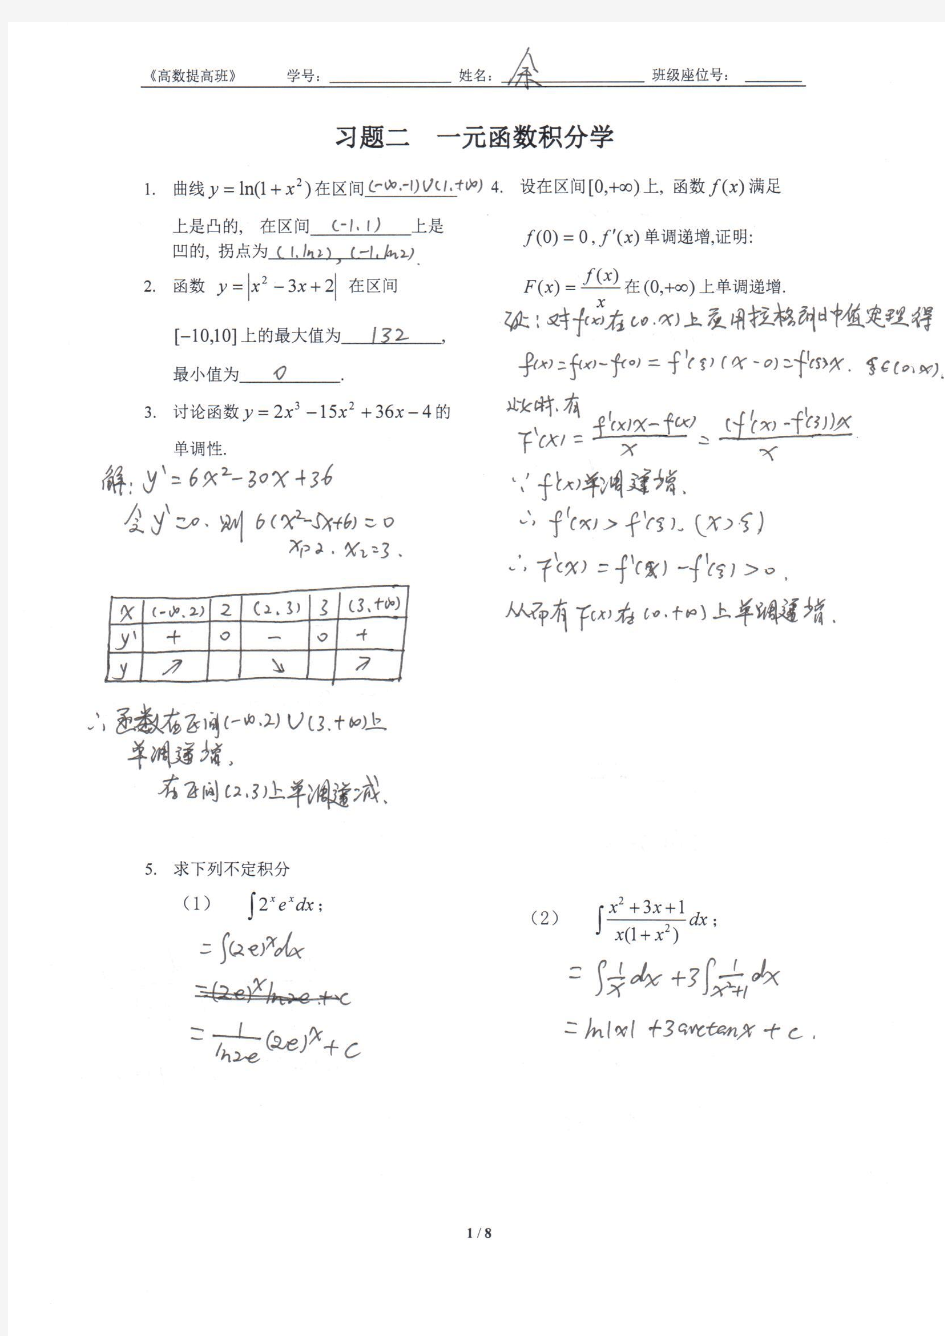 《高数提高班》 学号： 姓名：余 班级座位号：
习题二 一元函数积分学
1. 曲线 y = ln(1 + x²) 在区间 (-∞,-1)∪(1,+∞)
上是凸的, 在区间 (-1,1) 上是
凹的, 拐点为 (1,ln2), (-1,ln2).
2. 函数 y = |x² - 3x + 2| 在区间
[-10,10] 上的最大值为 132 ,
最小值为 0 .
3. 讨论函数 y = 2x³ - 15x² + 36x - 4 的
单调性.
解: y' = 6x² - 30x + 36
令 y' = 0. 则 6(x² - 5x + 6) = 0
x₁=2. x₂=3.
x (-∞.2) 2 (2.3) 3 (3.+∞)
y' + 0 - 0 +
y ↗ ↘ ↗
∴ 函数在区间(-∞.2)∪(3.+∞)上
单调递增,
在区间(2.3)上单调递减.
4. 设在区间[0,+∞)上, 函数 f(x) 满足
f(0) = 0 , f'(x) 单调递增,证明:
F(x) = f(x)/x 在 (0,+∞) 上单调递增.
证: 对f(x)在(0.x)上应用拉格朗日中值定理得
f(x)=f(x)-f(0) = f'(ξ)(x-0)=f'(ξ)x. ξ∈(0,x).
此时.有
F'(x) = (f'(x)x-f(x))/x = ((f'(x)-f'(ξ))x)/x
∵ f'(x)单调递增.
∴ f'(x) > f'(ξ). (x>ξ)
∴ F'(x) = f'(x) - f'(ξ) > 0.
从而有 F(x)在(0.+∞)上单调递增.
5. 求下列不定积分
（1） ∫2ˣeˣdx ;
= ∫(2e)ˣdx
=(2e)ˣ ln2e + c
= 1/ln2e (2e)ˣ + c
（2） ∫ (x² + 3x + 1)/(x(1 + x²)) dx ;
= ∫ 1/x dx + 3∫ 1/(x²+1) dx
= ln|x| + 3arctanx + c .
1 / 8